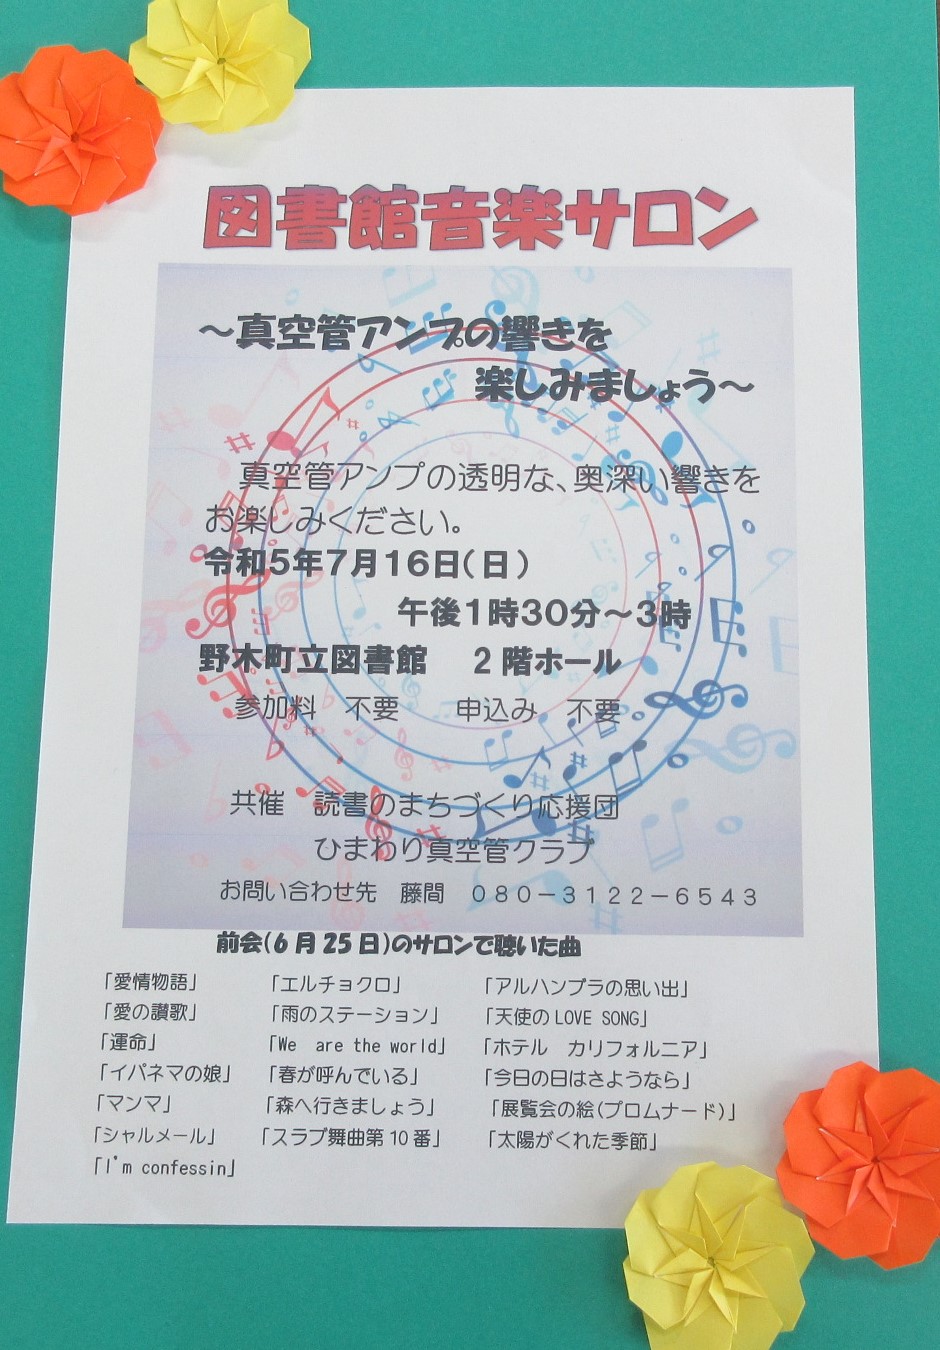 図書館音楽サロン
～真空管アンプの響きを
楽しみましょう～
真空管アンプの透明な、奥深い響きを
お楽しみください。
令和5年7月16日(日)
午後1時30分～3時
野木町立図書館　2階ホール
参加料　不要　　申込み　不要
共催　読書のまちづくり応援団
ひまわり真空管クラブ
お問い合わせ先　藤間　０８０－３１２２－６５４３
前会(6月25日)のサロンで聴いた曲
「愛情物語」　「エルチョクロ」　「アルハンブラの思い出」
「愛の讃歌」　「雨のステーション」　「天使のLOVE SONG」
「運命」　「We are the world」　「ホテル　カリフォルニア」
「イパネマの娘」　「春が呼んでいる」　「今日の日はさようなら」
「マンマ」　「森へ行きましょう」　「展覧会の絵(プロムナード)」
「シャルメール」　「スラブ舞曲第10番」　「太陽がくれた季節」
「I'm confessin」